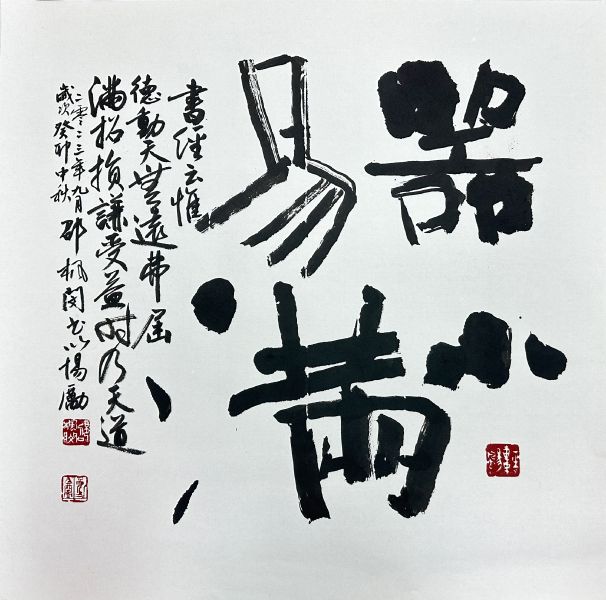 器小
易满
書經云惟
德動天無遠弗屆
满招損謙受益时乃天道
二零二三年九月邵楓闵书以惕勵
歲次癸卯中秋